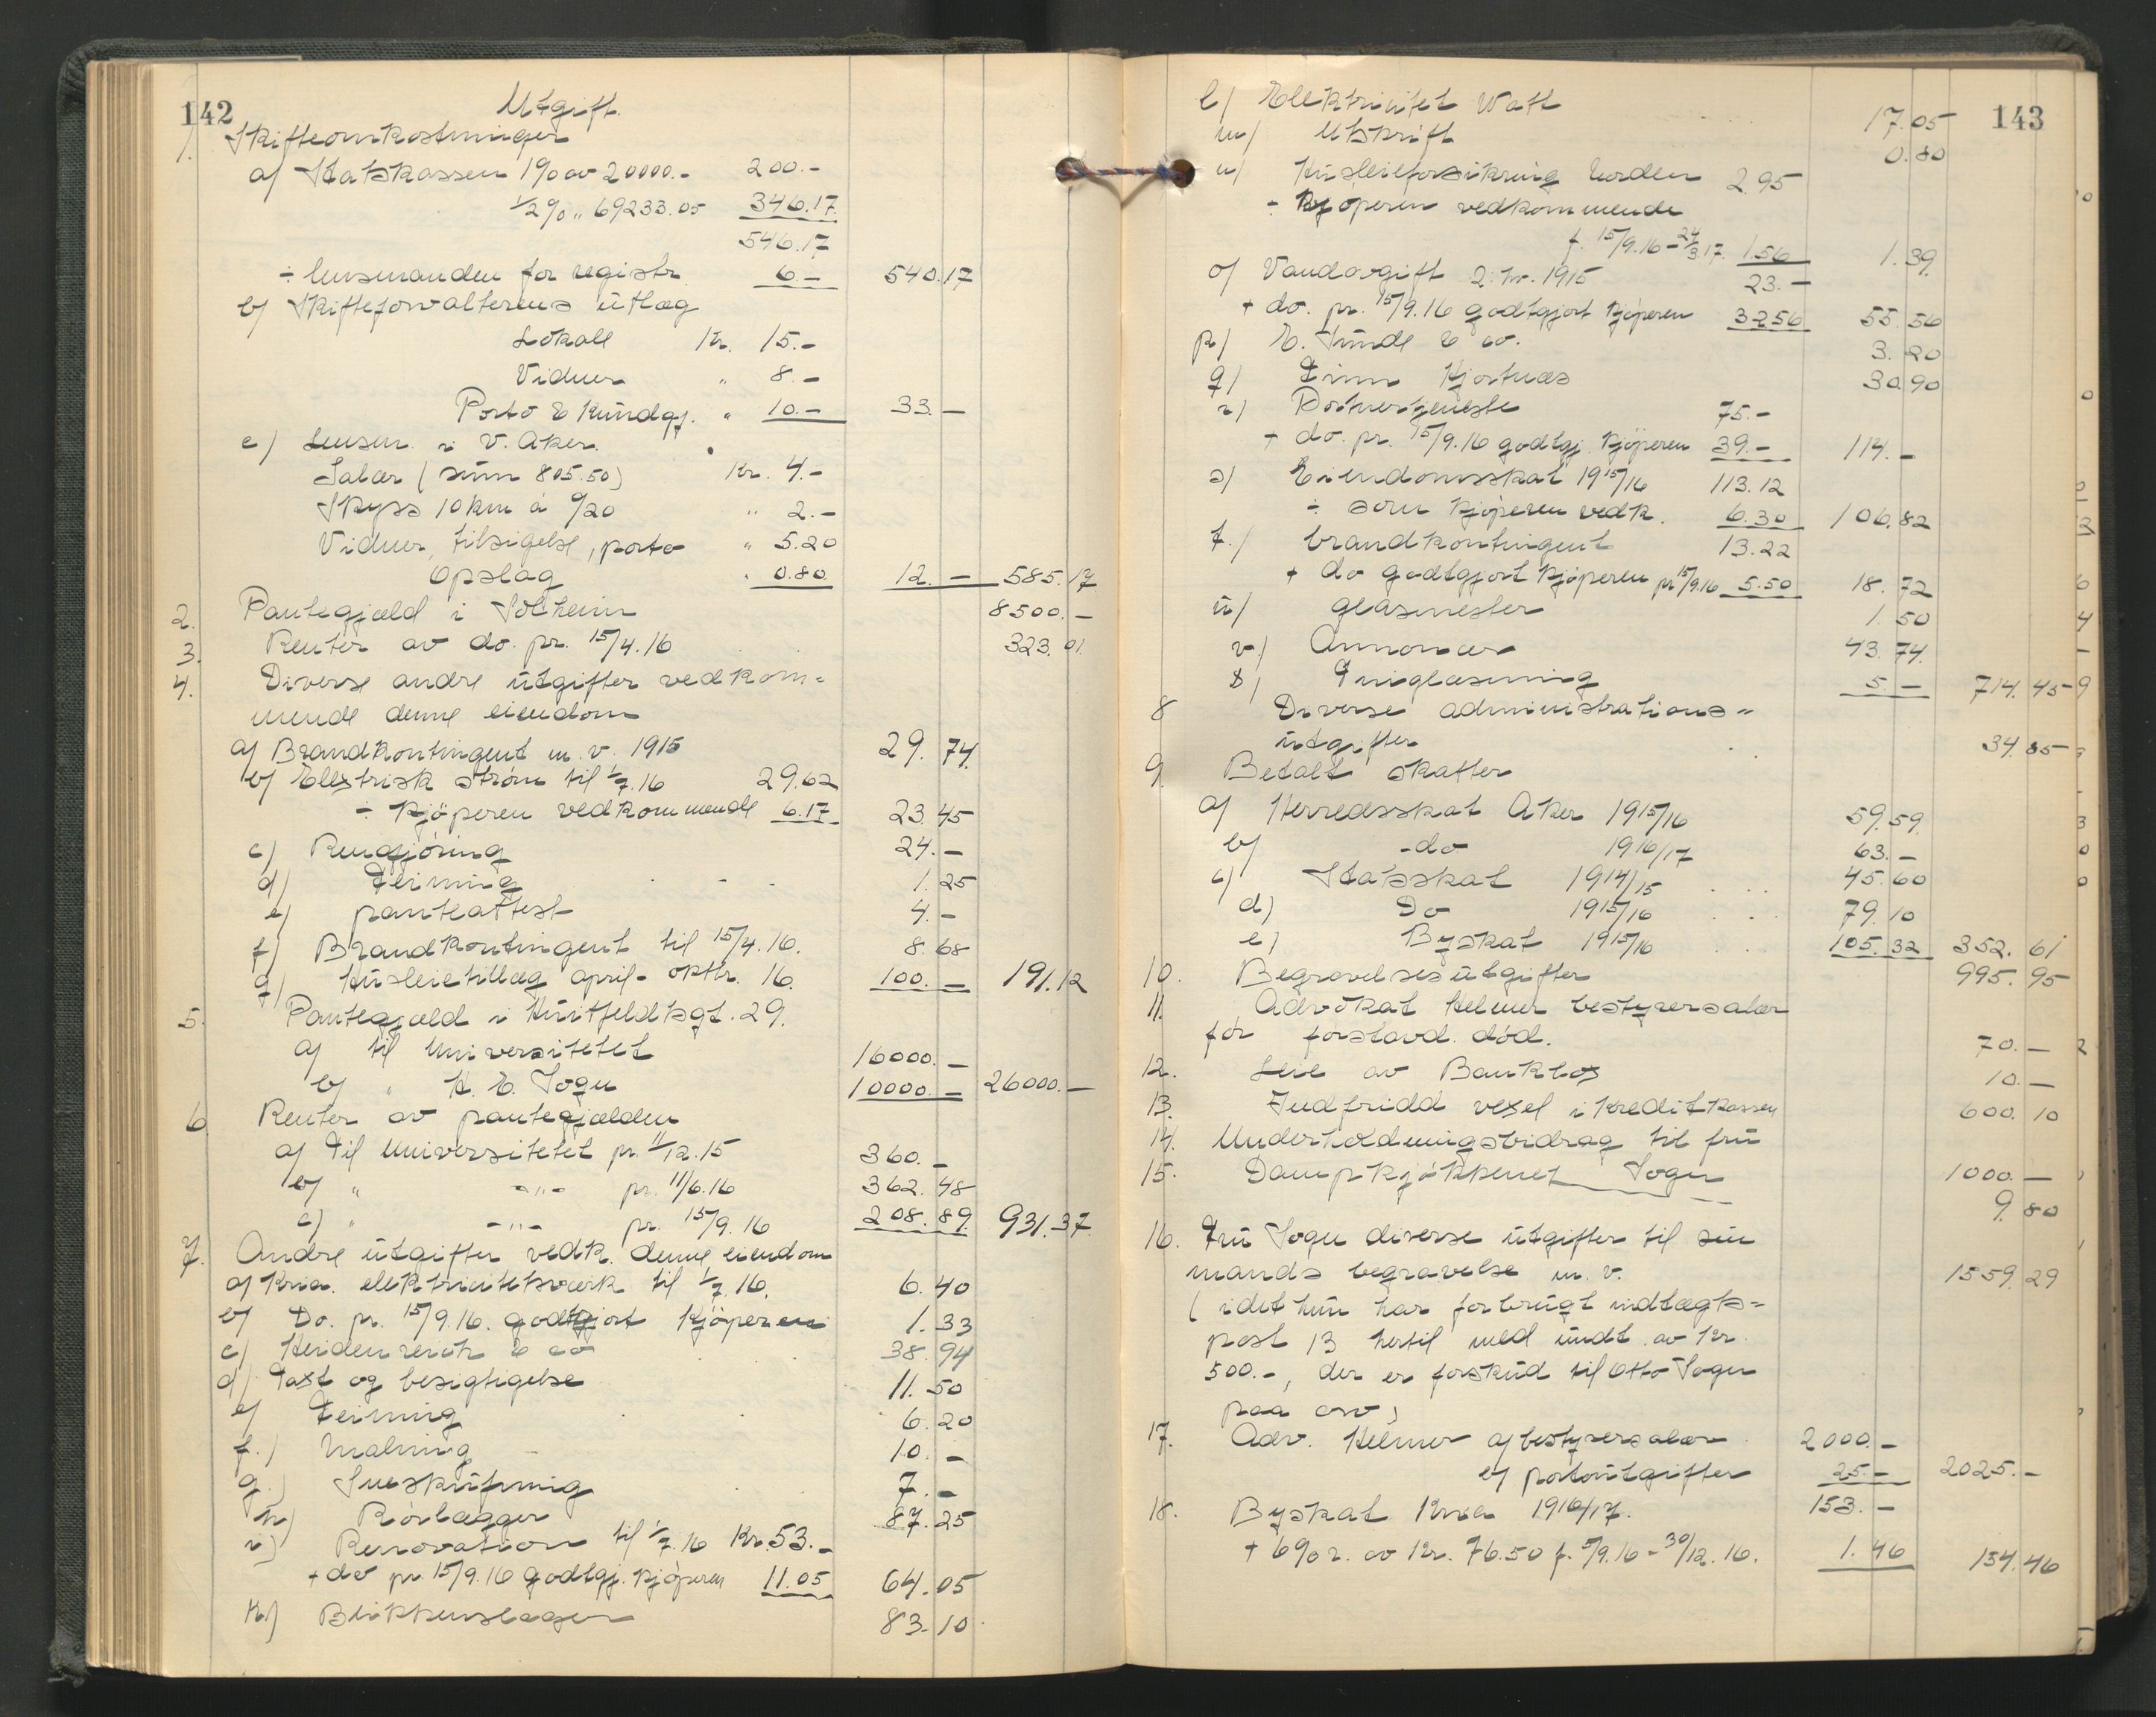 142
Utgift.
1. Skifteomkostninger
a) Statskassen 1% av 20000.- 200.-
1/2% " 69233.05 346.17
546.17
÷ lensmanden for registr. 6.- 540.17
b) Skifteforvalterens utlæg
Lokale Kr. 15.-
Vidner " 8.-
Porto & kundgj. " 10.- 33.-
c) Lensm. i V. Aker.
Salær (sum 805.50) Kr. 4.-
Skyss 10 km à 0/20 " 2.-
Vidner, tilsigelse, porto " 5.20
Opslag " 0.80 12.- 585.17
2. Pantegjæld i Solheim 8500.-
3. Renter av do. pr. 15/4.16 323.01.
4. Diverse andre utgifter vedkom-
mende denne eiendom
a) Brandkontingent m.v. 1915 29.74
b) Elektrisk strøm til 1/7.16 29.62
÷ kjøperen vedkommende 6.17 23.45
c) Rengjøring 24.-
d) Feining 1.25
e) panteattest 4.-
f) Brandkontingent til 15/4.16. 8.68
g) Husleietillæg april-oktbr. 16. 100.- 191.12
5. Pantegjæld i Huitfeldtsgt. 29.
a) til Universitetet 16000.-
b) " H. E. Sogn 10000.- 26000.-
6. Renter av pantegjælden
a) Til Universitetet pr. 11/12.15 360.-
b) " -"- pr. 11/6.16 362.48
c) " -"- pr. 15/9.16 208.89. 931.37.
7. Andre utgifter vedk. denne eiendom
a) Kria. elektricitetsværk til 1/7.16. 6.40
b) Do. pr. 15/9.16. godtgjort kjøperen 1.33
c) Heidenreich & co 38.94
d) Taxt og besigtigelse 11.50
e) Feining 6.20
f.) Maling 10.-
g.) Sneskufning 7.-
h) Rørlægger 87.25
i) Renovation til 1/7.16 Kr. 53.-
+ do pr. 15/9.16 godtgj. kjøperen 11.05 64.05
k) Blikkenslager 83.10
143
l) Elektricitet Watt 17.05
m) Utskrift 0.80
n) Husleieforsikring Norden 2.95
÷ Kjøperen vedkommende
f. 15/9.16 - 24/3.17. 1.56 1.39.
o) Vandavgift 2. hv. 1915 23.-
+ do. pr. 15/9.16 godtgjort kjøperen 32.56 55.56
p) E. Sunde & co. 3.20
q) Finn Hjortnæs 30.90
r) Portnertjeneste 75.-
+ do. pr. 15/9.16 godtgj. kjøperen 39.- 114.-
s) Eiendomsskat 1915/16 113.12
÷ som kjøperen vedk. 6.30 106.82
t.) brandkontingent 13.22
+ do godtgjort kjøperen pr 15/9.16 5.50 18.72
u) glasmester 1.50
v.) Annoncer 43.74.
x) Iniglasning 5.- 714.45
8 Diverse administrations-
utgifter 34.85
9. Betalt skatter
a) Herredsskat Aker 1915/16 59.59.
b) -do 1916/17 63.-
c) Statsskat 1914/15 45.60
d) Do 1915/16 79.10
e) Byskat 1915/16 105.32 352.61
10. Begravelsesutgifter 995.95
11. Advokat Helmer bestyrersalær
før forstavd. død. 70.-
12. Leie av Bankboks 10.-
13. Indfridd vexel i Kreditkassen 600.10
14. Underholdningsbidrag til fru
Sogn 1000.-
15. Dampkjøkkenet 9.80
16. Fru Sogn diverse utgifter til sin
mands begravelse m.v. 1559.29
(idet hun har forbrugt indtægts-
post 13 hertil med undt. av kr.
500.-, der er forskud til Otto Sogn
paa arv)
17. Adv. Helmer a) bestyrersalær 2000.-
b) portoutgifter 25.- 2025.-
18. Byskat Kria 1916/17. 153.-
+ 6% r. av Kr. 76.50 f. 5/9.16 - 30/12.16. 1.46 154.46